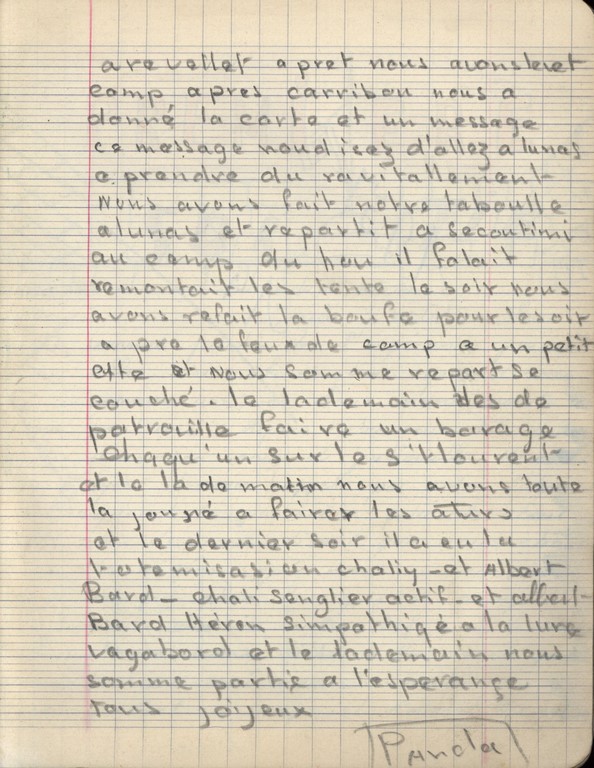 a revellet apret nous avons levet
camp apres carribou nous a
donné la carte et un message
ce message nous disez d'allez a lunas
a prendre du ravitallement
Nous avons fait notre taboulle
a lunas et repartit a
au camp du hou il falait
remontait les tente le soir nous
avons refait la boufe pour le soir
a pre le feux de camp a un petit
et Nous somme repart se
couché. le lademain des de
patrouille faire un barage
chaqu'un sur le
et le la de matin nous avons toute
la jouné a fairer les
et le dernier soir il a eu la
totemisasion chaliy - et Albert
Bard - chali senglier actif - et albert
Bard Héron simpathiqe a la lure
vagabord et le lademain nous
somme partie a l'esperange
tous joijeux
Panda